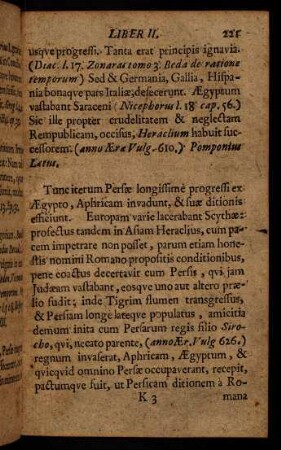 LIBER II. 225
usqve progressi. Tanta erat principis ignavia.
(Diac. l. 17. Zonarae tomo 3. Beda de ratione
temporum) Sed & Germania, Gallia, Hispa-
nia bonaqve pars Italiæ, defecerunt. Ægyptum
vastabant Saraceni (Nicephorus l. 18 cap. 56.)
Sic ille propter crudelitatem & neglectam
Rempublicam, occisus, Heraclium habuit suc-
cessorem. (anno Æræ Vulg. 610,) Pomponius
Lætus.
Tunc iterum Persæ longissimè progressi ex
Ægypto, Aphricam invadunt, & suæ ditionis
efficiunt. Europam varie lacerabant Scythæ:
profectus tandem in Asiam Heraclius, cum pa-
cem impetrare non posset, parum etiam hone-
stis nomini Romano propositis conditionibus,
pene coactus decertavit cum Persis, qvi jam
Judæam vastabant, eosqve uno aut altero præ-
lio fudit; inde Tigrim flumen transgressus,
& Persiam longe lateqve populatus, amicitia
demum inita cum Persarum regis filio Siro-
cho, qvi, necato parente, (anno Ær. Vulg 626,)
regnum invaserat, Aphricam, Ægyptum, &
qvicqvid omnino Persæ occupaverant, recepit,
pactumqve fuit, ut Persicam ditionem à Ro-
K 3 mana